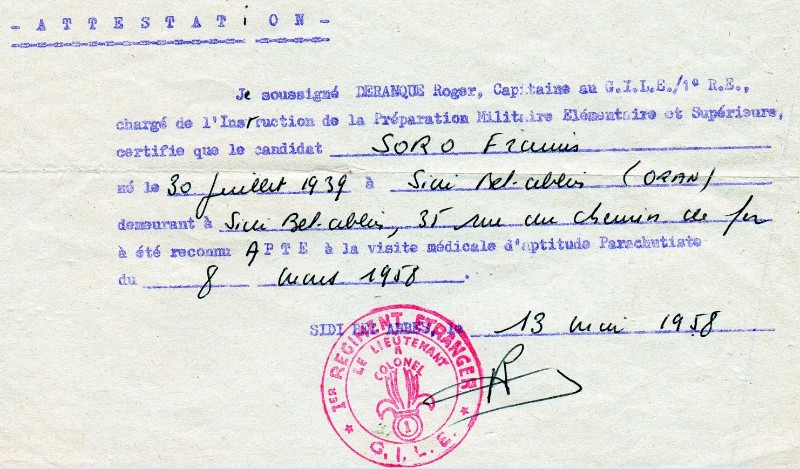 - ATTESTATiON -
Je soussigné DERANQUE Roger, Capitaine au G.I.L.E./1° R.E.,
chargé de l'Instruction de la Préparation Militaire Elémentaire et Supérieure,
certifie que le candidat SORO Francis
né le 30 Juillet 1939 à Sidi Bel-abbès (ORAN)
demeurant à Sidi Bel-abbès, 35 rue du chemin de fer
à été reconnu APTE à la visite médicale d'aptitude Parachutiste
du 8 mars 1958.
SIDI BEL ABBES, le 13 mai 1958
1ER REGIMENT ETRANGER
LE LIEUTENANT
COLONEL
1
* G.I.L.E. *